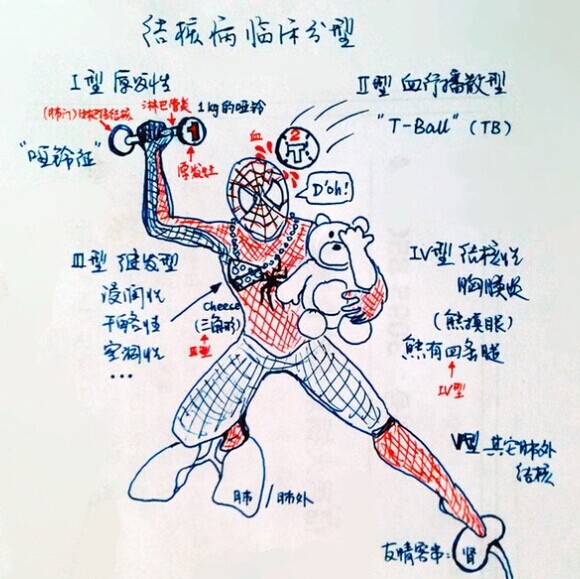 结核病临床分型
I型 原发性
淋巴管炎
1kg的哑铃
(肺门)淋巴结结核
1
"哑铃征"
原发灶
II型 血行播散型
"T-Ball" (TB)
血
2
T
D'oh!
III型 继发型
浸润性
干酪性
空洞性
...
Cheese
(三角形)
III型
IV型 结核性
胸膜炎
(熊摸眼)
熊有四条腿
IV型
V型 其它肺外
结核
肺/肺外
友情客串:
肾